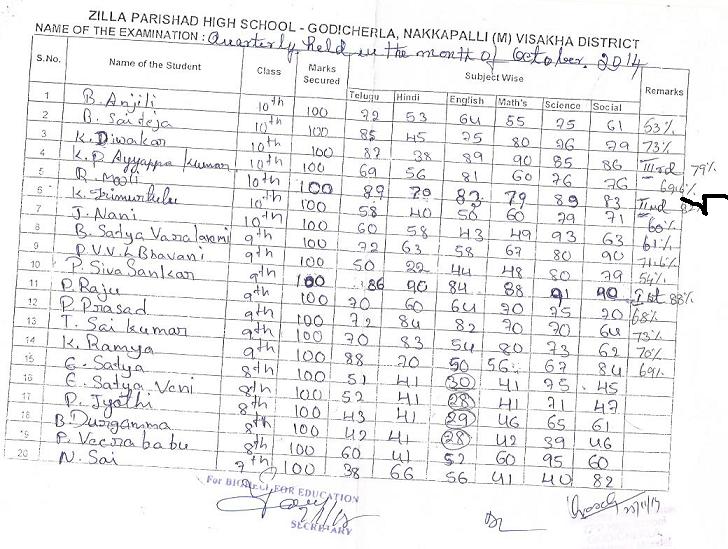 ZILLA PARISHAD HIGH SCHOOL - GODICHERLA, NAKKAPALLI (M) VISAKHA DISTRICT
NAME OF THE EXAMINATION : Quarterly, held in the month of October. 2014
S.No. Name of the Student Class Marks Secured Subject Wise Remarks
Telugu Hindi English Math's Science Social
1 B. Anjili 10th 100 72 53 64 55 75 61 63%
2 B. Sai teja 10th 100 85 45 75 80 76 79 73%
3 K. Diwakar 10th 100 87 38 89 90 85 86 IIIrd 79%
4 K. D Ayyappa kumar 10th 100 69 56 81 60 76 76
5 R. 10th 100 89 70 82 79 89 83 IInd
6 K. 10th 100 58 40 50 60 79 71 60%
7 J. Nani 10th 100 60 58 43 49 93 63 61%
8 B. Satya 9th 100 72 63 58 67 80 90 71.6%
9 P.V.V.L Bhavani 9th 100 50 22 44 48 80 79 54%
10 P. Siva Sankar 9th 100 86 90 84 88 91 90 Ist 88%
11 P. Raju 9th 100 70 60 64 70 75 70 68%
12 P. Prasad 9th 100 72 84 82 70 70 64 73%
13 T. Sai kumar 9th 100 70 83 54 80 73 62 70%
14 K. Ramya 9th 100 88 70 50 56 67 84 69%
15 G. Satya 8th 100 51 41 30 41 75 45
16 G. Satya Veni 8th 100 52 41 28 41 71 47
17 P. Jyothi 8th 100 43 41 29 46 65 61
18 B. Durgamma 8th 100 42 41 28 42 39 46
19 P. Veera babu 8th 100 60 41 52 60 95 60
20 N. Sai 7th 100 38 66 56 41 40 82
FOR EDUCATION
SECRETARY